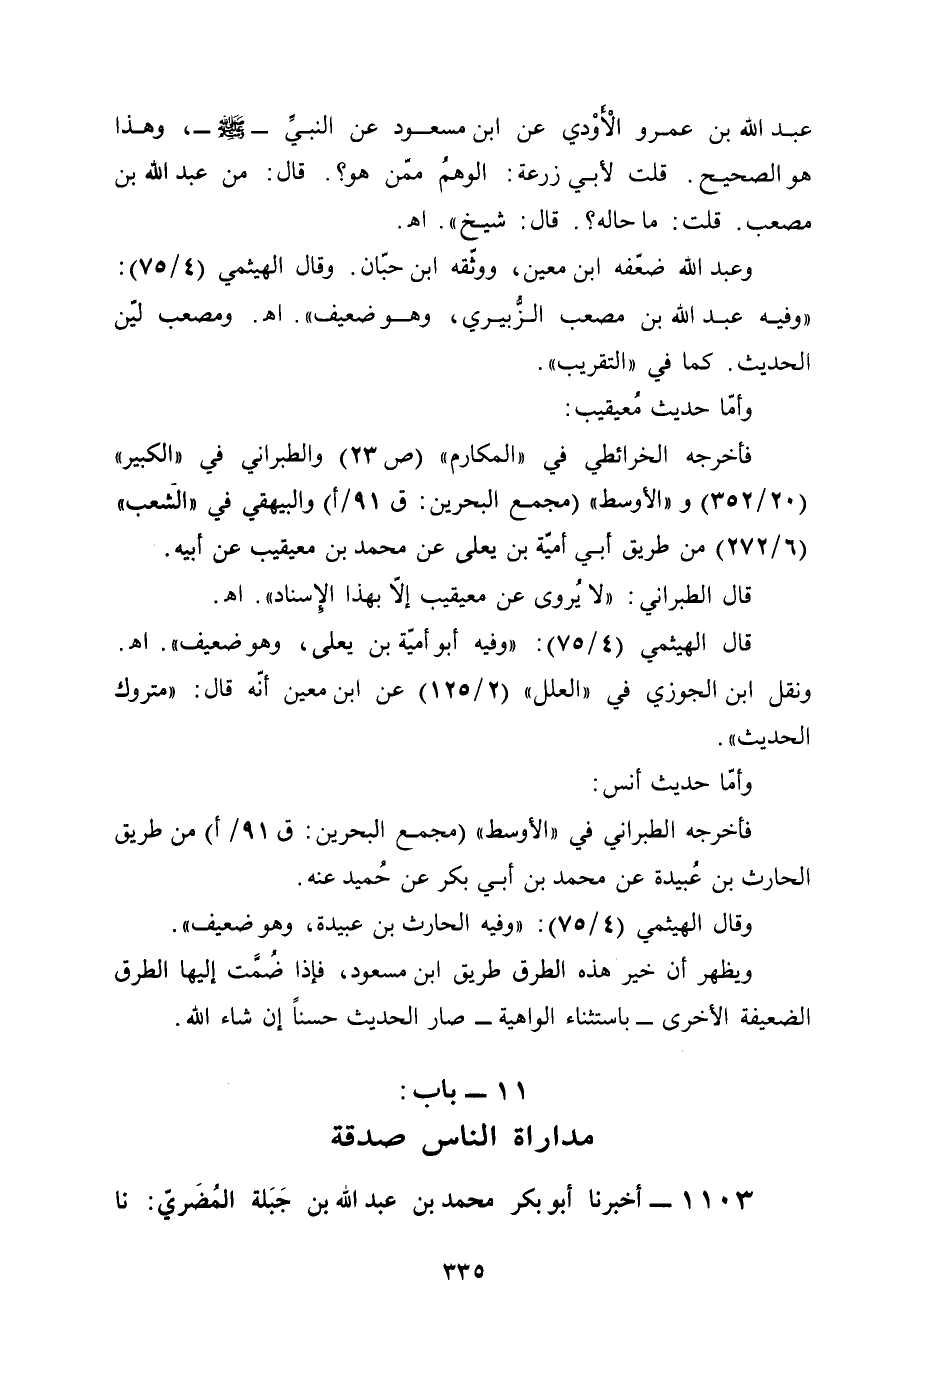 عبـد الله بن عمـرو الْأَوْدي عن ابن مسعـود عن النبيِّ ـ ﷺ ـ، وهـذا
هو الصحيح. قلت لأبي زرعة: الوهمُ ممّن هو؟. قال: من عبد الله بن
مصعب. قلت: ما حاله؟. قال: شيخ». اهـ.
وعبد الله ضعّفه ابن معين، ووثّقه ابن حبّان. وقال الهيثمي (٧٥/٤):
«وفيـه عبـد الله بن مصعب الـزُّبيـري، وهـو ضعيف». اهـ. ومصعب ليّن
الحديث. كما في «التقريب».
وأمّا حديث مُعيقيب:
فأخرجه الخرائطي في «المكارم» (ص ٢٣) والطبراني في «الكبير»
(٣٥٢/٢٠) و «الأوسط» (مجمع البحرين: ق ٩١/أ) والبيهقي في «الشَعب»
(٢٧٢/٦) من طريق أبي أميّة بن يعلى عن محمد بن معيقيب عن أبيه.
قال الطبراني: «لا يُروى عن معيقيب إلاّ بهذا الإِسناد». اهـ.
قال الهيثمي (٧٥/٤): «وفيه أبو أميّة بن يعلى، وهو ضعيف». اهـ.
ونقل ابن الجوزي في «العلل» (١٢٥/٢) عن ابن معين أنّه قال: «متروك
الحديث».
وأمّا حديث أنس:
فأخرجه الطبراني في «الأوسط» (مجمع البحرين: ق ٩١/ أ) من طريق
الحارث بن عُبيدة عن محمد بن أبي بكر عن حُميد عنه.
وقال الهيثمي (٧٥/٤): «وفيه الحارث بن عبيدة، وهو ضعيف».
ويظهر أن خير هذه الطرق طريق ابن مسعود، فإذا ضُمَّت إليها الطرق
الضعيفة الأخرى ـ باستثناء الواهية ـ صار الحديث حسناً إن شاء الله.
١١ ـ باب:
مداراة الناس صدقة
١١٠٣ ـ أخبرنا أبو بكر محمد بن عبد الله بن جَبَلة المُضَريّ: نا
٣٣٥